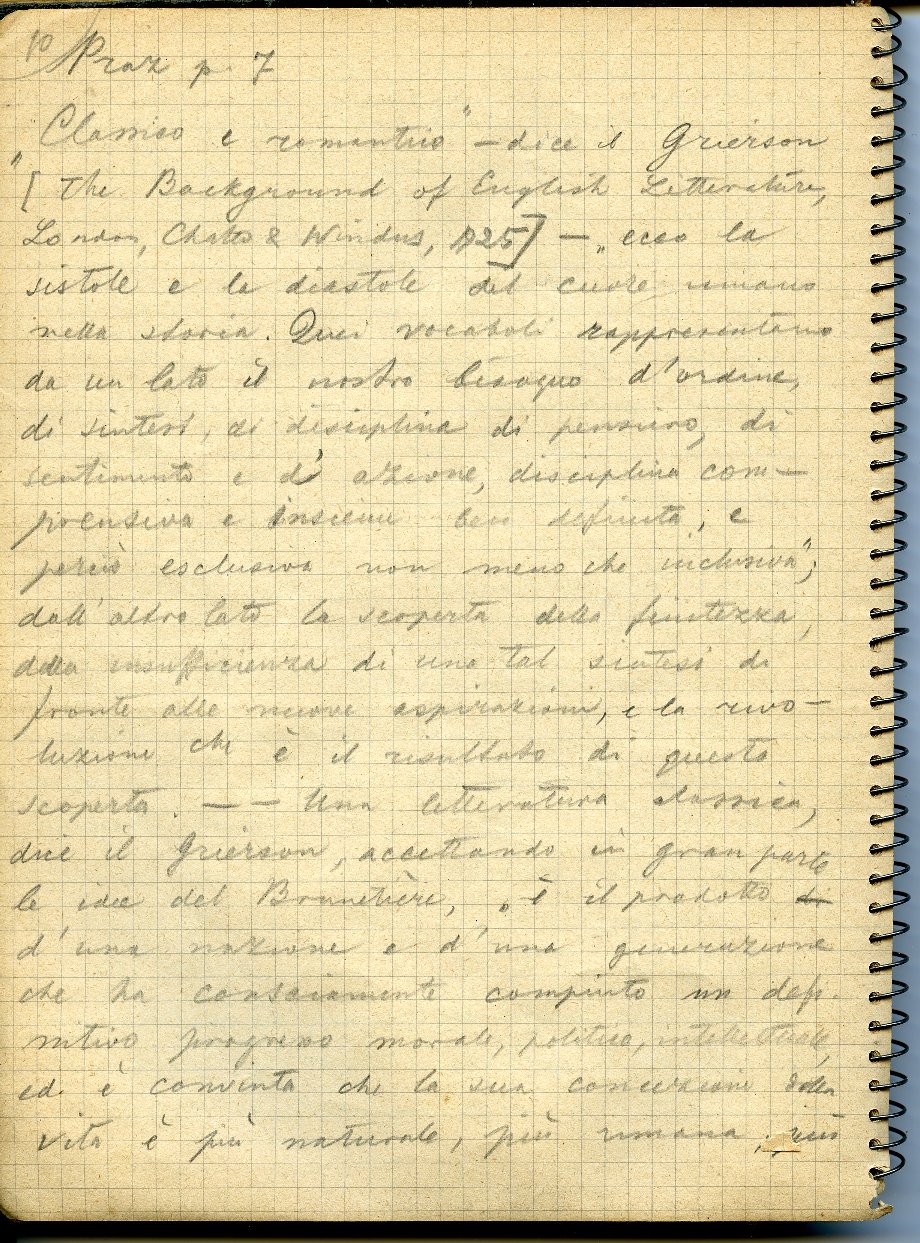 10 Praz p. 7
„Classico e romantico" — dice il Grierson
[ The Background of English Litterature,
London, Chatto & Windus, 1925] — „ecco la
sistole e la diastole del cuore umano
nella storia. Quei vocaboli rappresentano
da un lato il nostro bisogno d'ordine,
di sintesi, di disciplina di pensiero, di
sentimento e d' azione, disciplina com-
prensiva e insieme ben definita, e
perciò esclusiva non meno che inclusiva";
dall'altro lato la scoperta della finitezza,
della insufficienza di una tal sintesi di
fronte alle nuove aspirazioni, e la rivo-
luzione che è il risultato di questa
scoperta. — — Una letteratura classica,
dice il Grierson, accettando in gran parte
le idee del Brunetière, „è il prodotto di
d'una nazione e d'una generazione
che ha consciamente compiuto un defi-
nitivo progresso morale, politico, intellettuale,
ed è convinta che la sua concezione della
vita è più naturale, più umana, più